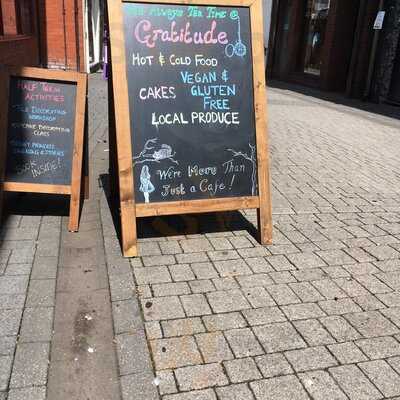 HALF TERM
ACTIVITIES
CAKE DECORATING
WORKSHOP
CUPCAKE DECORATING
CLASS
BOOK
INSIDE!
Always Tea Time @
Gratitude
HOT & COLD FOOD
CAKES
VEGAN &
GLUTEN
FREE
LOCAL PRODUCE
We're More Than
Just a Cafe!